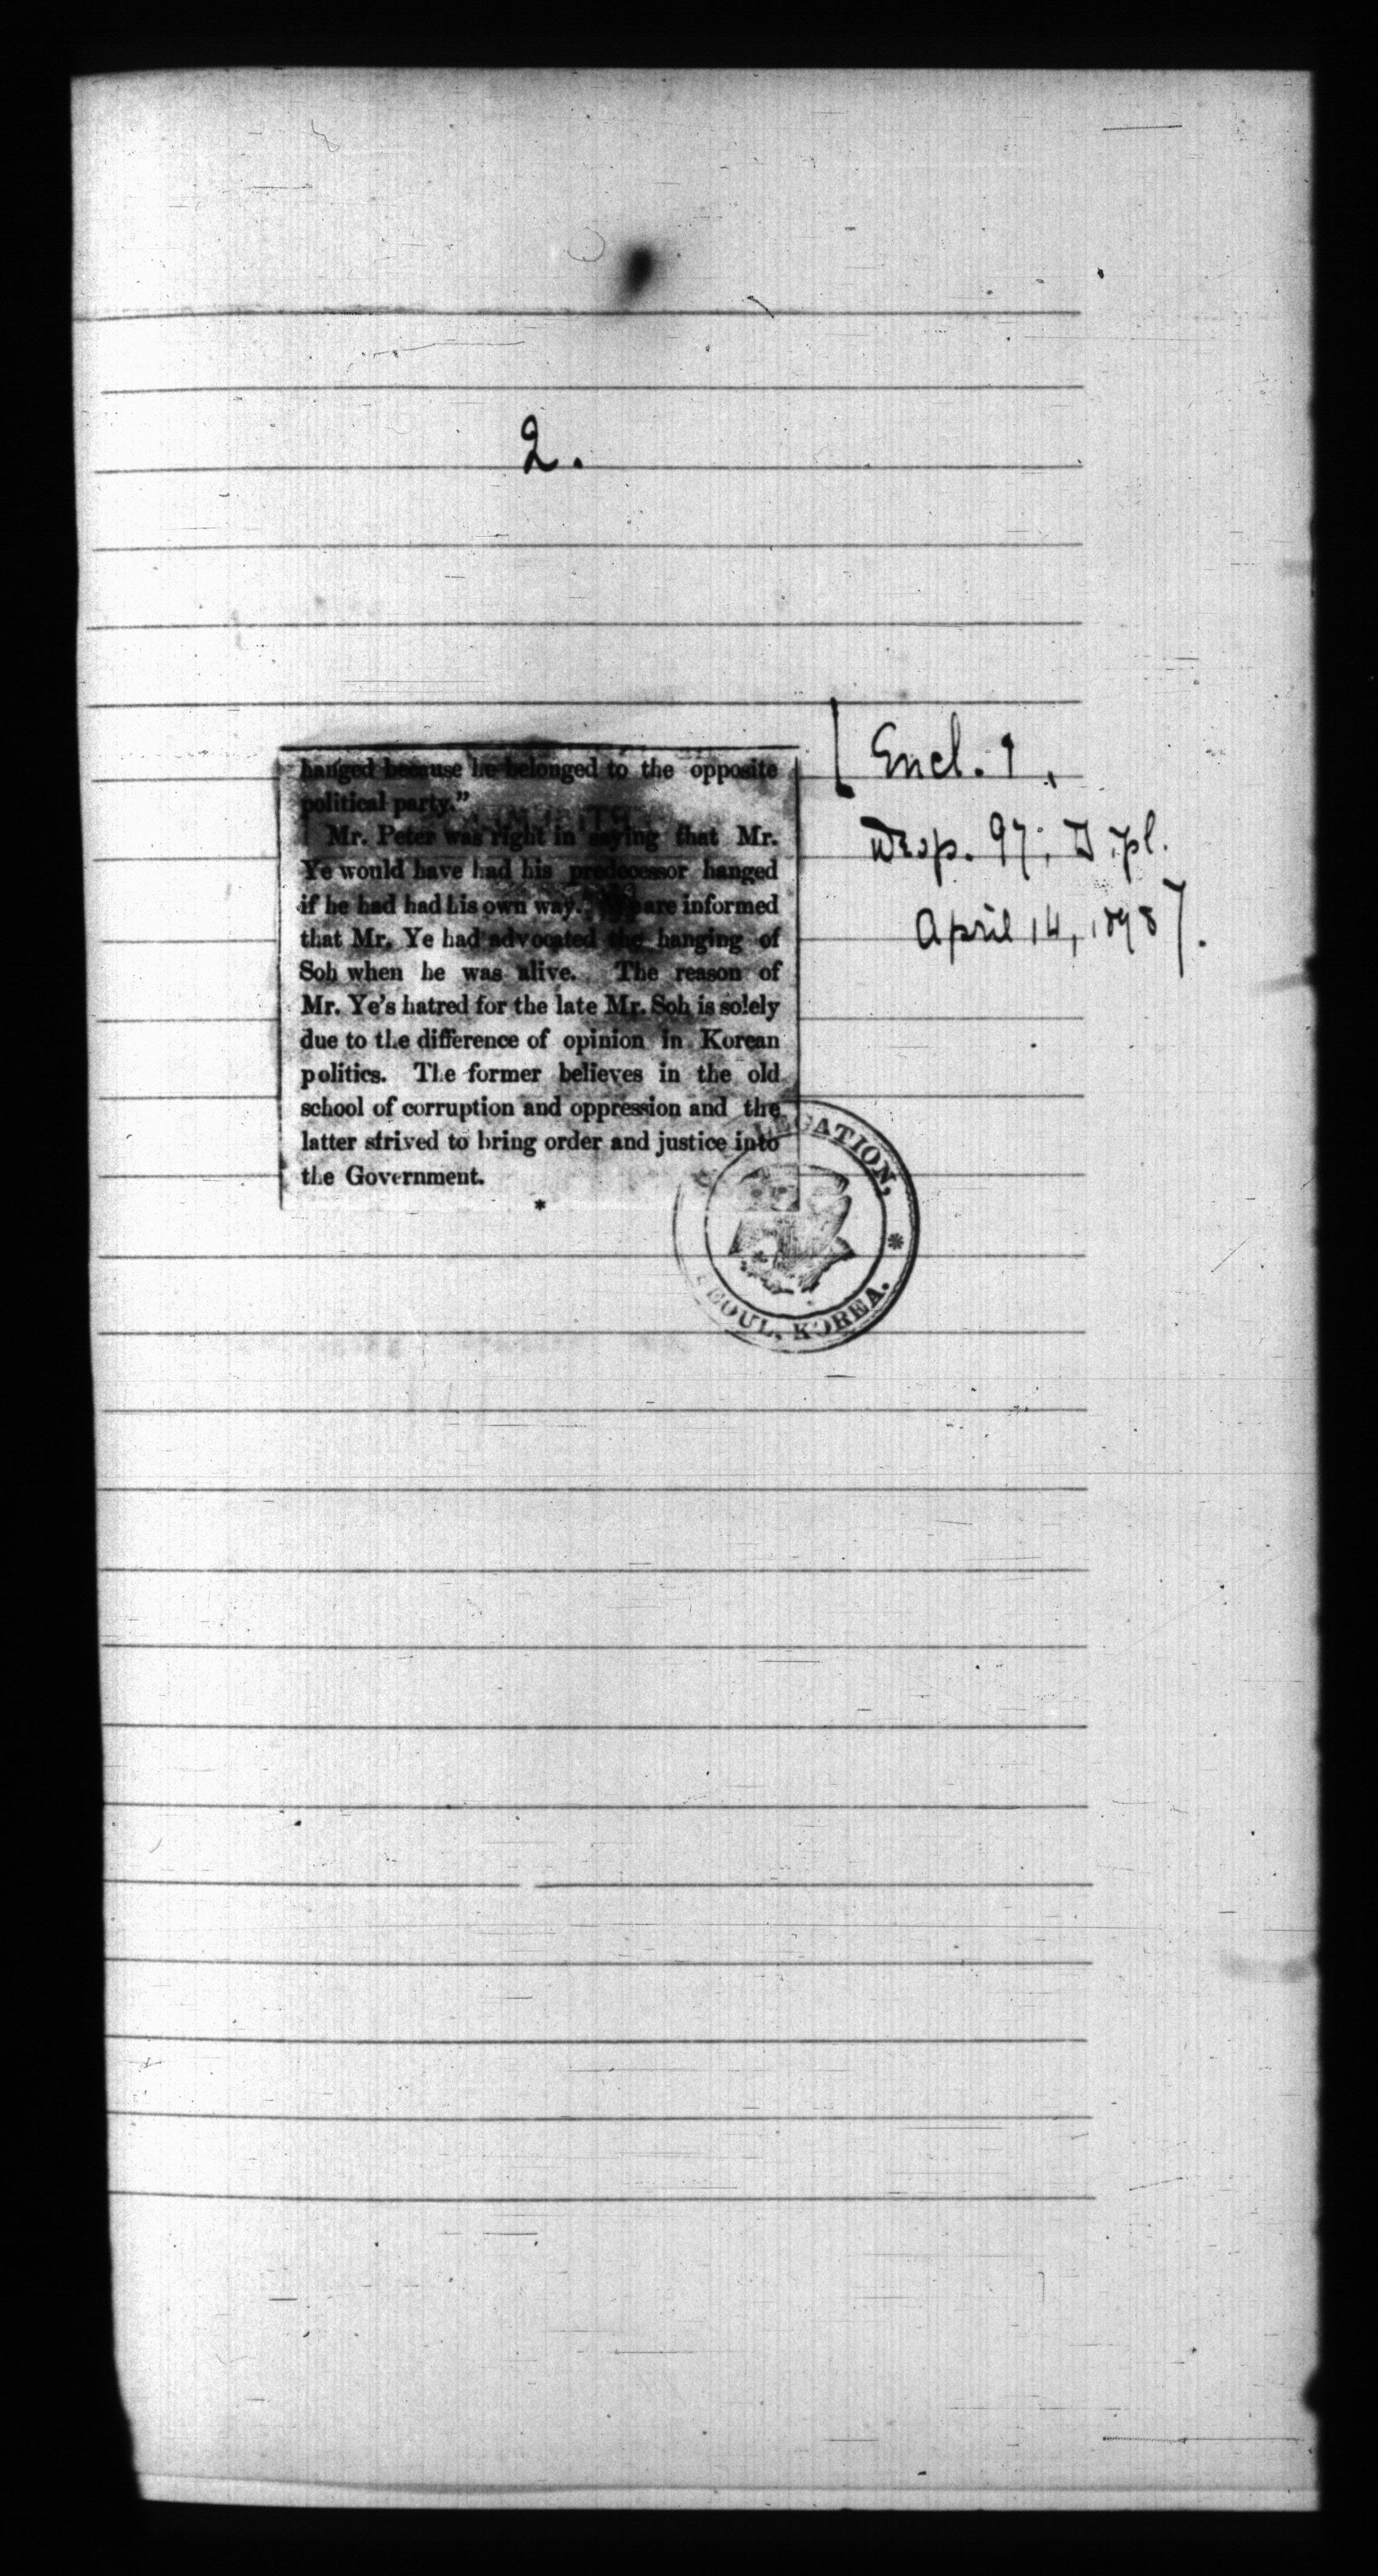 2.
hanged because he belonged to the opposite
political party."
Mr. Peter was right in saying that Mr.
Ye would have had his predecessor hanged
if he had had his own way. We are informed
that Mr. Ye had advocated the hanging of
Soh when he was alive. The reason of
Mr. Ye's hatred for the late Mr. Soh is solely
due to the difference of opinion in Korean
politics. The former believes in the old
school of corruption and oppression and the
latter strived to bring order and justice into
the Government.
*
Encl. 1,
Desp. 97, Dipl.
April 14, 1898
LEGATION,
EOUL, KOREA.